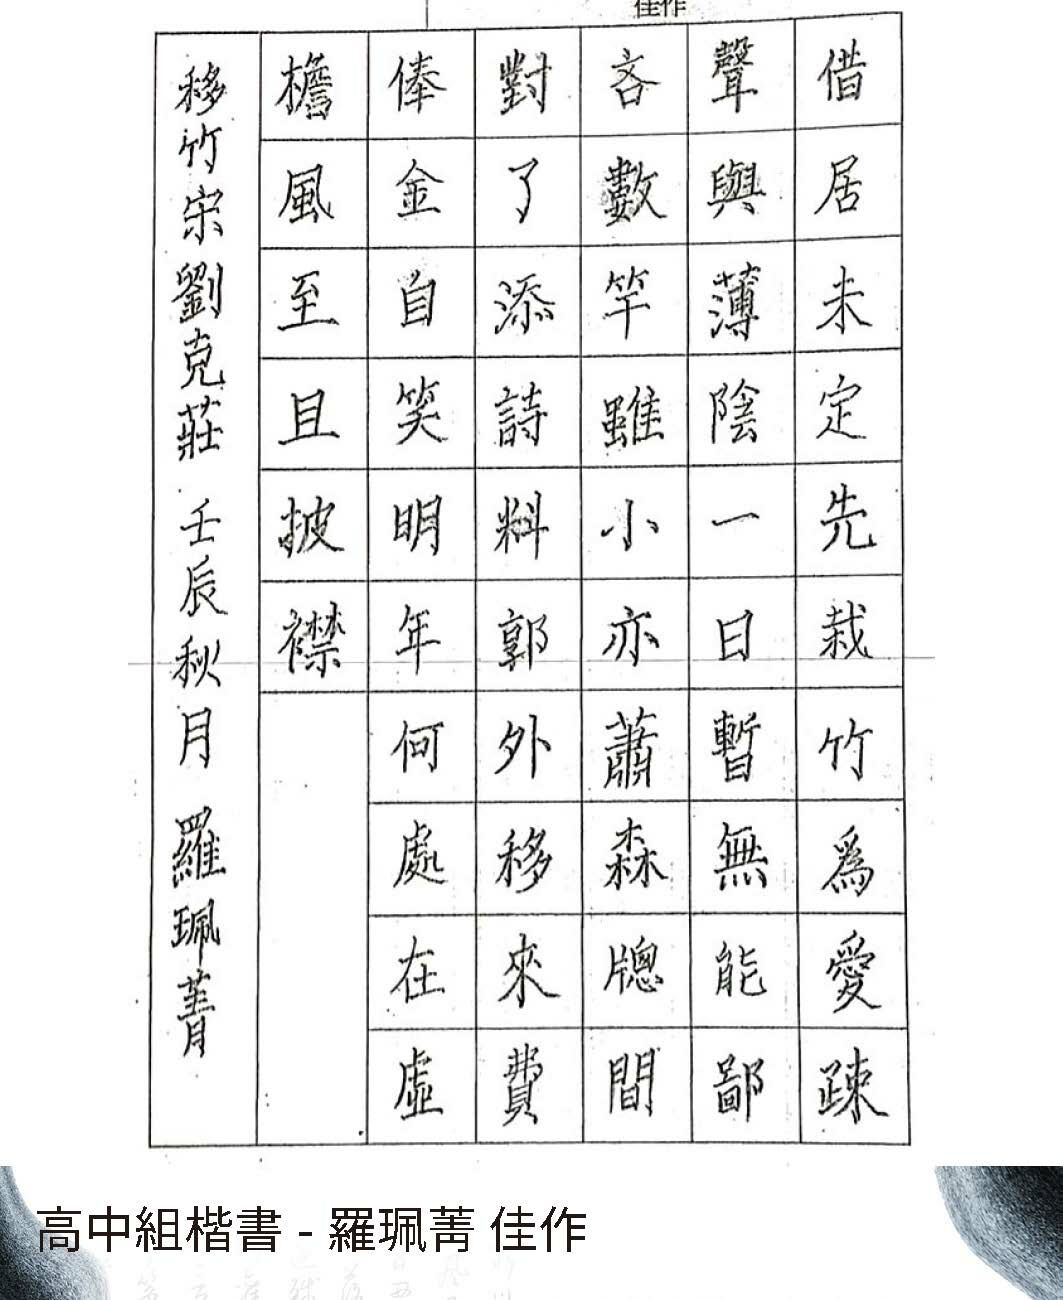 佳作
借居未定先栽竹爲愛疎
聲與薄陰一日暫無能鄙
吝數竿雖小亦蕭森牕間
對了添詩料郭外移來費
俸金自笑明年何處在虛
檐風至且披襟
移竹宋劉克莊 壬辰秋月 羅珮菁
高中組楷書 - 羅珮菁 佳作